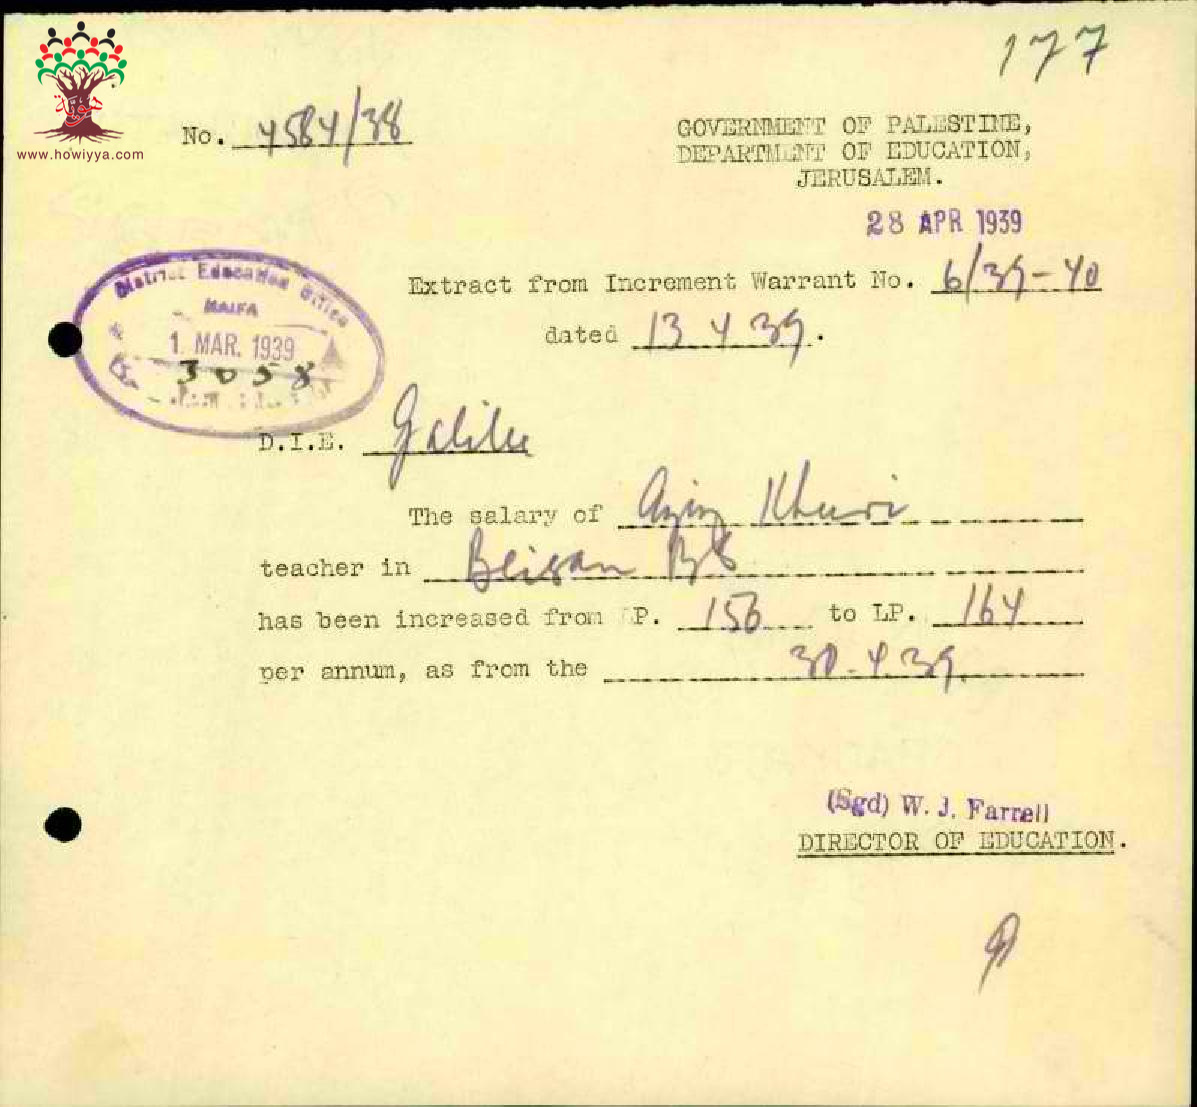 177
هوية
www.howiyya.com
No. 4584/38
GOVERNMENT OF PALESTINE,
DEPARTMENT OF EDUCATION,
JERUSALEM.
28 APR 1939
Extract from Increment Warrant No. 6/39-40
dated 13 4 39.
District Education Office
HAIFA
1 MAR. 1939
3058
D.I.E. Galilee
The salary of Aziz Khuri
teacher in Beisan BS
has been increased from LP. 156 to LP. 164
per annum, as from the 30-4 39.
(Sgd) W. J. Farrell
DIRECTOR OF EDUCATION.